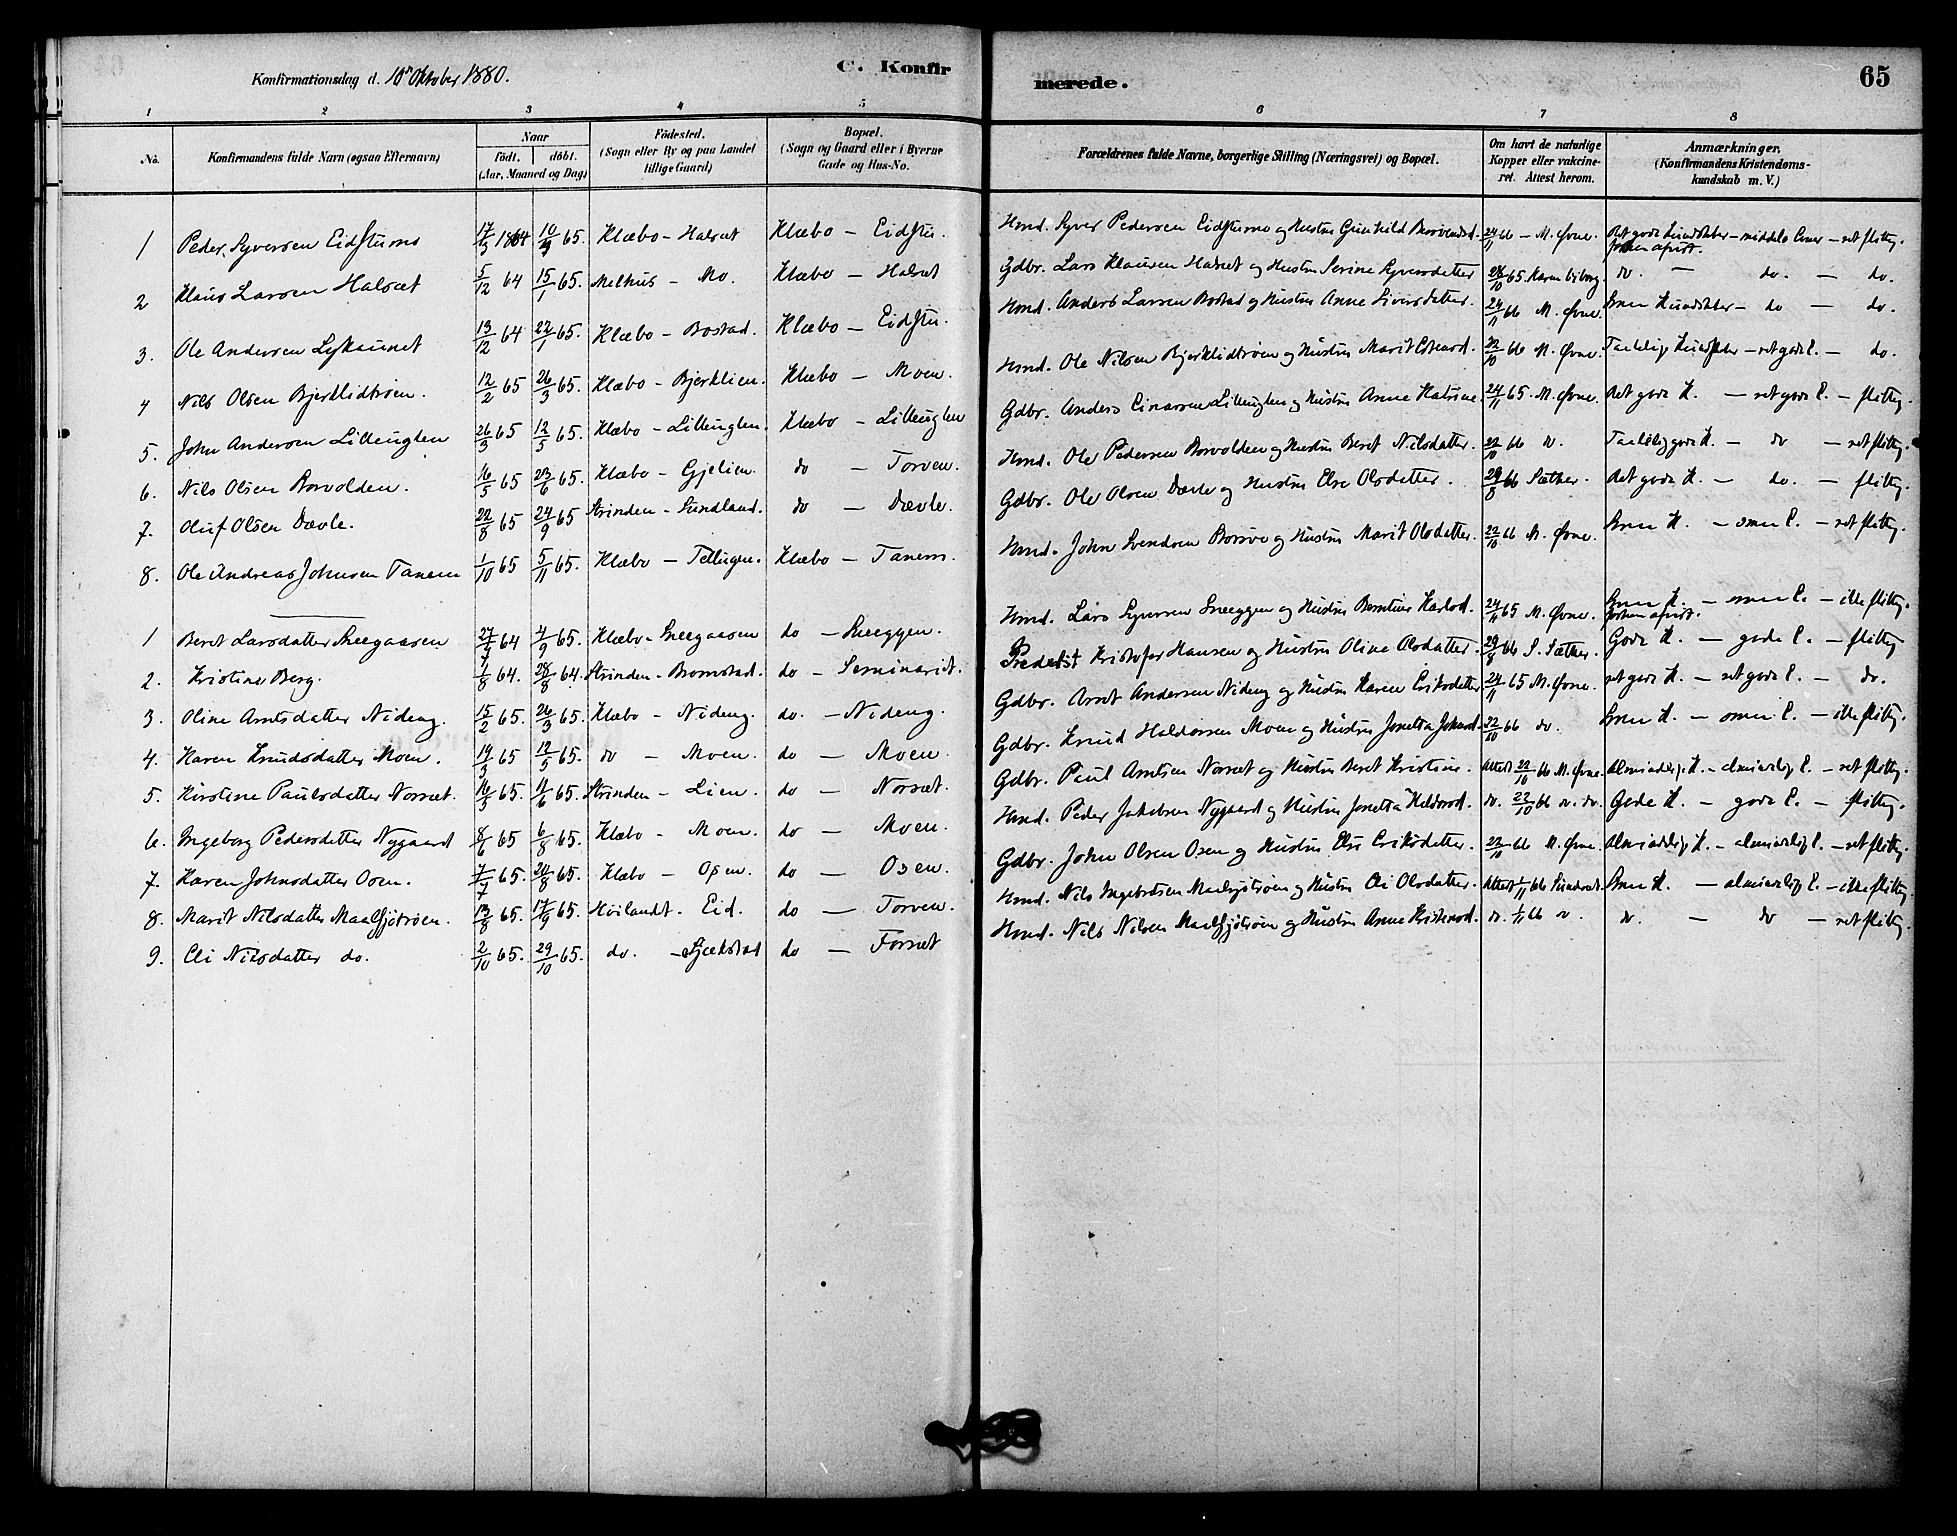 Konfirmationsdag d. 10de Oktober 1880. C. Konfirmerede. 65
1 2 3 4 5 6 7 8
No. Konfirmandens fulde Navn (ogsaa Efternavn) Naar födt. döbt. (Aar, Maaned og Dag) Födested. (Sogn eller By og paa Landet tillige Gaard) Bopæl. (Sogn og Gaard eller i Byerne Gade og Hus-No. Forældrenes fulde Navne, borgerlige Stilling (Næringsvei) og Bopæl. Om havt de naturlige Kopper eller vakcineret. Attest herom. Anmærkninger. (Konfirmandens Kristendomskundskab m. V.)
1 Peder Syversen Eidstumo 17/5 1864 10/9 65. Klæbo - Halset Klæbo - Eidstu. Hmd. Syver Pedersen Eidstumo og Hustru Gunhild 24/11 66 - M. Øvne. Ret gode Kundskaber - middels Evner - ret flittig.
2 Klaus Larsen Halsæt 5/12 64 15/1 65. Melhus - Mo. Klæbo - Halsæt Gdbr. Lars Klausen Halsæt og Hustru Serine Syversdatter 28/10 65 Karen Viborg do. - do. - do.
3. Ole Andersen Lykaunet 13/12 64 22/1 65. Klæbo - Bostad. Klæbo - Eidstu. Hmd. Anders Larsen Bostad og Hustru Anne Siversdatter. 24/11 66 M. Øvne. Kundskaber - do - do.
4 Nils Olsen Bjerklidtrøen. 12/2 65 26/3 65. Klæbo - Bjerklien. Klæbo - Moen. Hmd. Ole Nilsen Bjerklidtrøen og Hustru Marit Estensd. 22/10 66 M. Øvne. Taalelige Kundskaber - ret gode E. - do.
5. John Andersen Lilleuglen 26/3 65 12/5 65. Klæbo - Lilleuglen. Klæbo - Lilleuglen Gdbr. Anders Einarsen Lilleuglen og Hustru Anne Katrine. 24/11 65. M. Øvne. Ret gode K. - ret gode E. - flittig.
6. Nils Olsen Borvolden. 16/5 65 23/6 65. Klæbo - Gjelien. do - Torven. Hmd. Ole Pedersen Borvolden og Hustru Beret Nilsdatter. 22/10 66 do. Taalelig gode K. - do - ret flittig.
7. Oluf Olsen Dævle. 22/8 65 24/9 65 Strinden - Sundland. do - Dævle. Gdbr. Ole Olsen Dævle og Hustru Else Olsdatter. 29/8 66 Sæther. Ret gode K. - do. - flittig.
8. Ole Andreas Johnsen Tanem 1/10 65 5/11 65. Klæbo - Tellugen. Klæbo - Tanem. Hmd. John Svendsen Borsve og Hustru Marit Olsdatter. 22/10 66 M. Øvne. K. - E. - ret flittig.
1 Beret Larsdatter Sneegaasen 27/7 64 4/9 65. Klæbo - Sneegaasen do - Sneeggen. Hmd. Lars Syversen Sneeggen og Hustru Berntine Karlsd. 24/11 65 M. Øvne. K. - E. - ikke flittig.
2. Kristine Berg. 1/8 64. 28/8 64. Strinden - Bromstad. do - Seminariet. Kristofer Hansen og Hustru Oline Olsdatter. 29/8 66 S. Sæther. Gode K. - gode E. - flittig.
3. Oline Arntsdatter Nideng. 15/2 65. 26/3 65. Klæbo - Nideng. do. - Nideng. Gdbr. Arnt Andersen Nideng og Hustru Karen Eriksdatter 24/11 65 M. Øvne. ret gode K. - ret gode E. - do.
4. Karen Knudsdatter Moen. 19/3 65 12/5 65. do - Moen. do - Moen. Gdbr. Knud Haldorsen Moen og Hustru Jonetta Johnsd. 22/10 66 do. K. - E. - ikke flittig.
5. Kirstine Paulsdatter Norset. 16/5 65. 11/6 65. Strinden - Lien. do - Norsæt. Gdbr. Paul Arntsen Norset og Hustru Beret Kristine. Attest 22/10 66 M. Øvne. Almindelig K. - almindelig E. - ret flittig.
6. Ingeborg Pedersdatter Nygaard 8/6 65 6/8 65. Klæbo - Moen. do - Moen. Hmd. Peder Jakobsen Nygaard og Hustru Jonetta Haldorsd. do. 22/10 66 do. do. Gode K. - gode E. - flittig.
7. Karen Johnsdatter Osen. 7/7 65. 20/8 65. Klæbo - Osen. do - Osen. Gdbr. John Olsen Osen og Hustru Else Eriksdatter. 22/10 66 M. Øvne. Almindelig K. - almindelig E. - ret flittig.
8. Marit Nilsdatter Maalsjøtrøen. 13/8 65. 17/9 65. Høilandt. Eid. do - Torven. Hmd. Nils Ingebretsen Maalsjøtrøen og Hustru Eli Olsdatter. Attest 1/11 66 K. - almindelig E. - ikke flittig.
9. Eli Nilsdatter do. 2/10 65. 29/10 65. do. do - Forset Hmd. Nils Nilsen Maalsjøtrøen og Hustru Anne do. 1/11 66 do. do. - do - ret flittig.